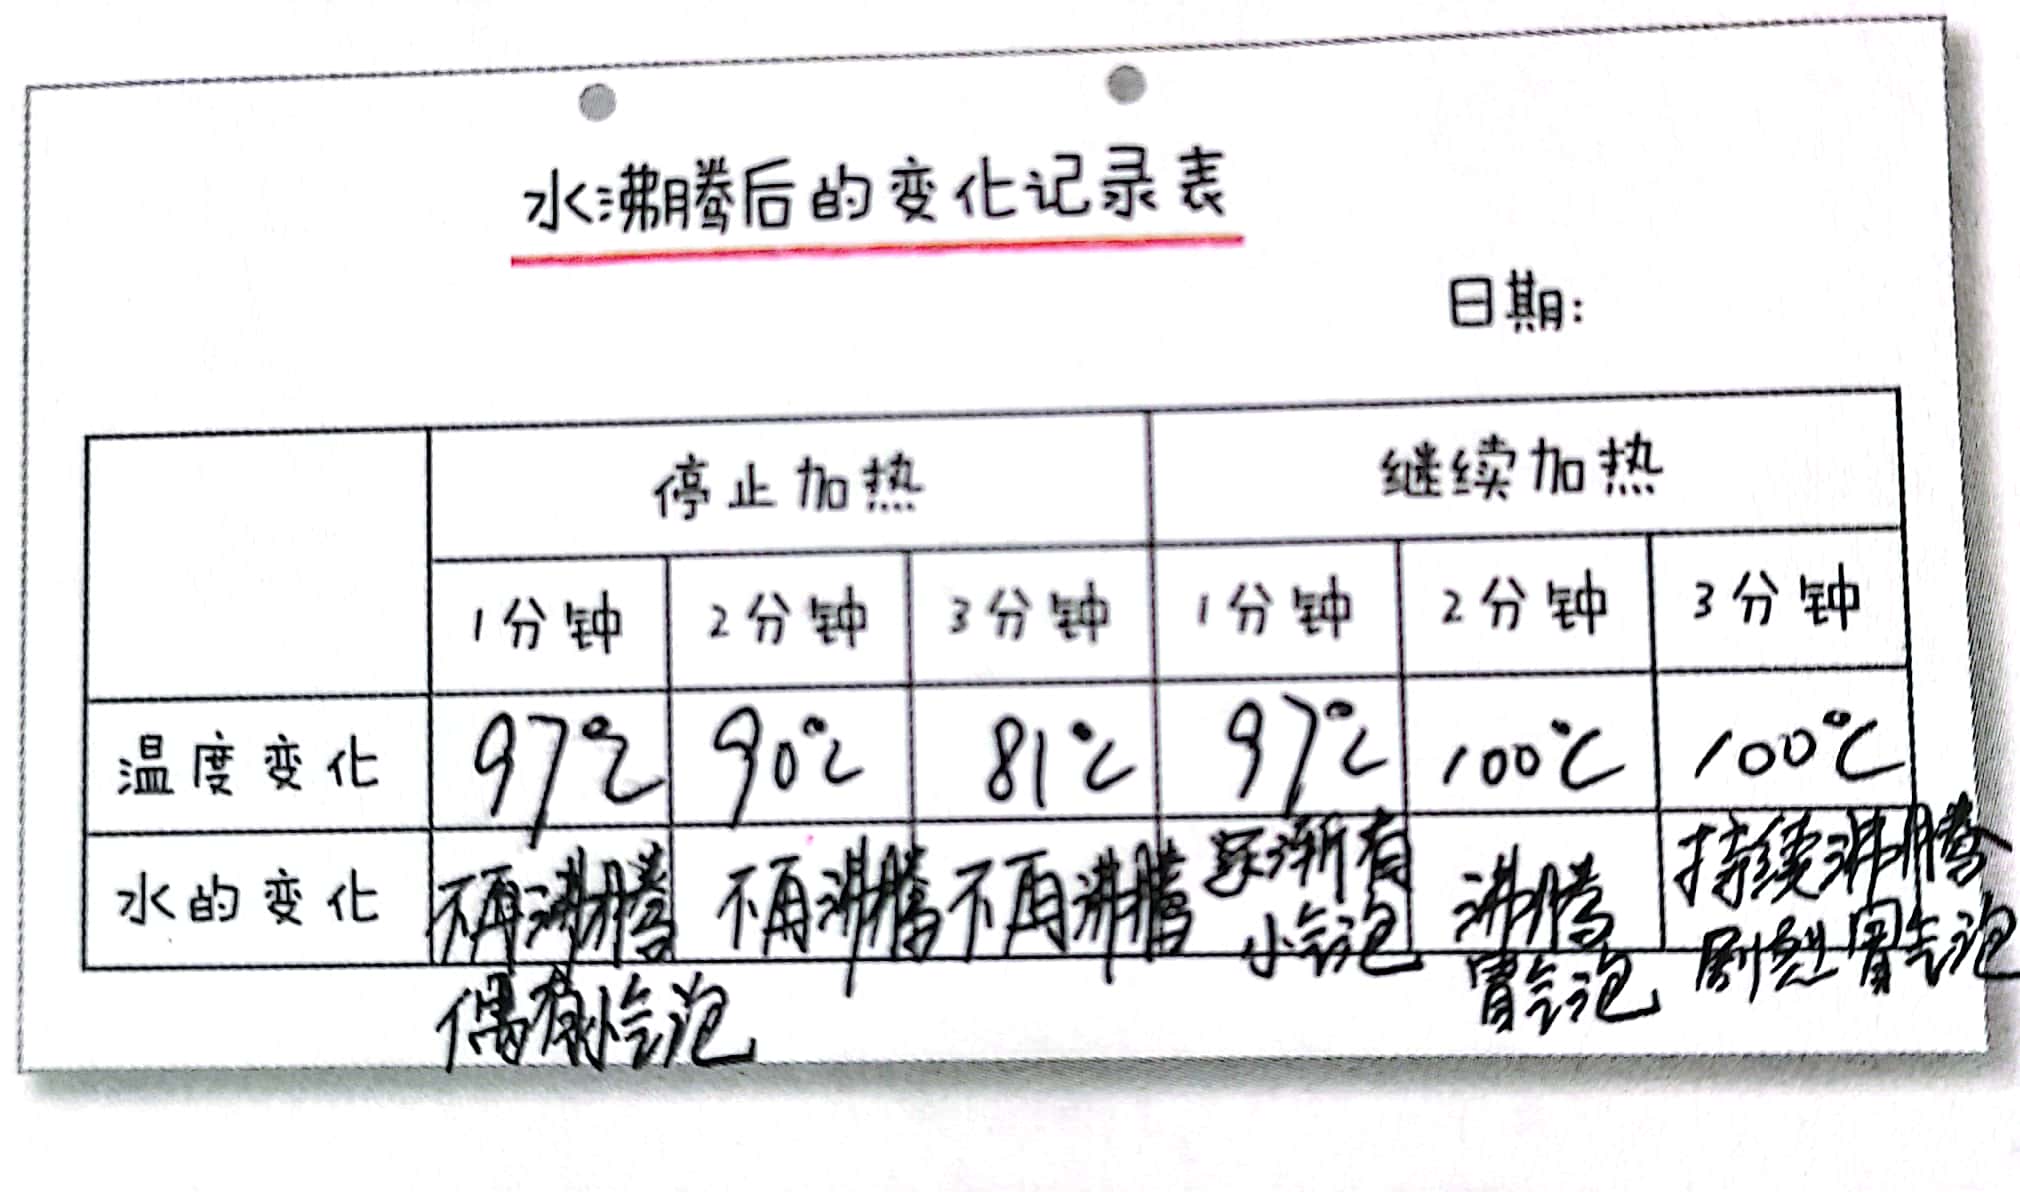 水沸腾后的变化记录表
日期:
停止加热 继续加热
1分钟 2分钟 3分钟 1分钟 2分钟 3分钟
温度变化 97℃ 90℃ 81℃ 97℃ 100℃ 100℃
水的变化 不再沸腾偶有小气泡 不再沸腾 不再沸腾 逐渐有小气泡 沸腾冒气泡 持续沸腾剧烈冒气泡